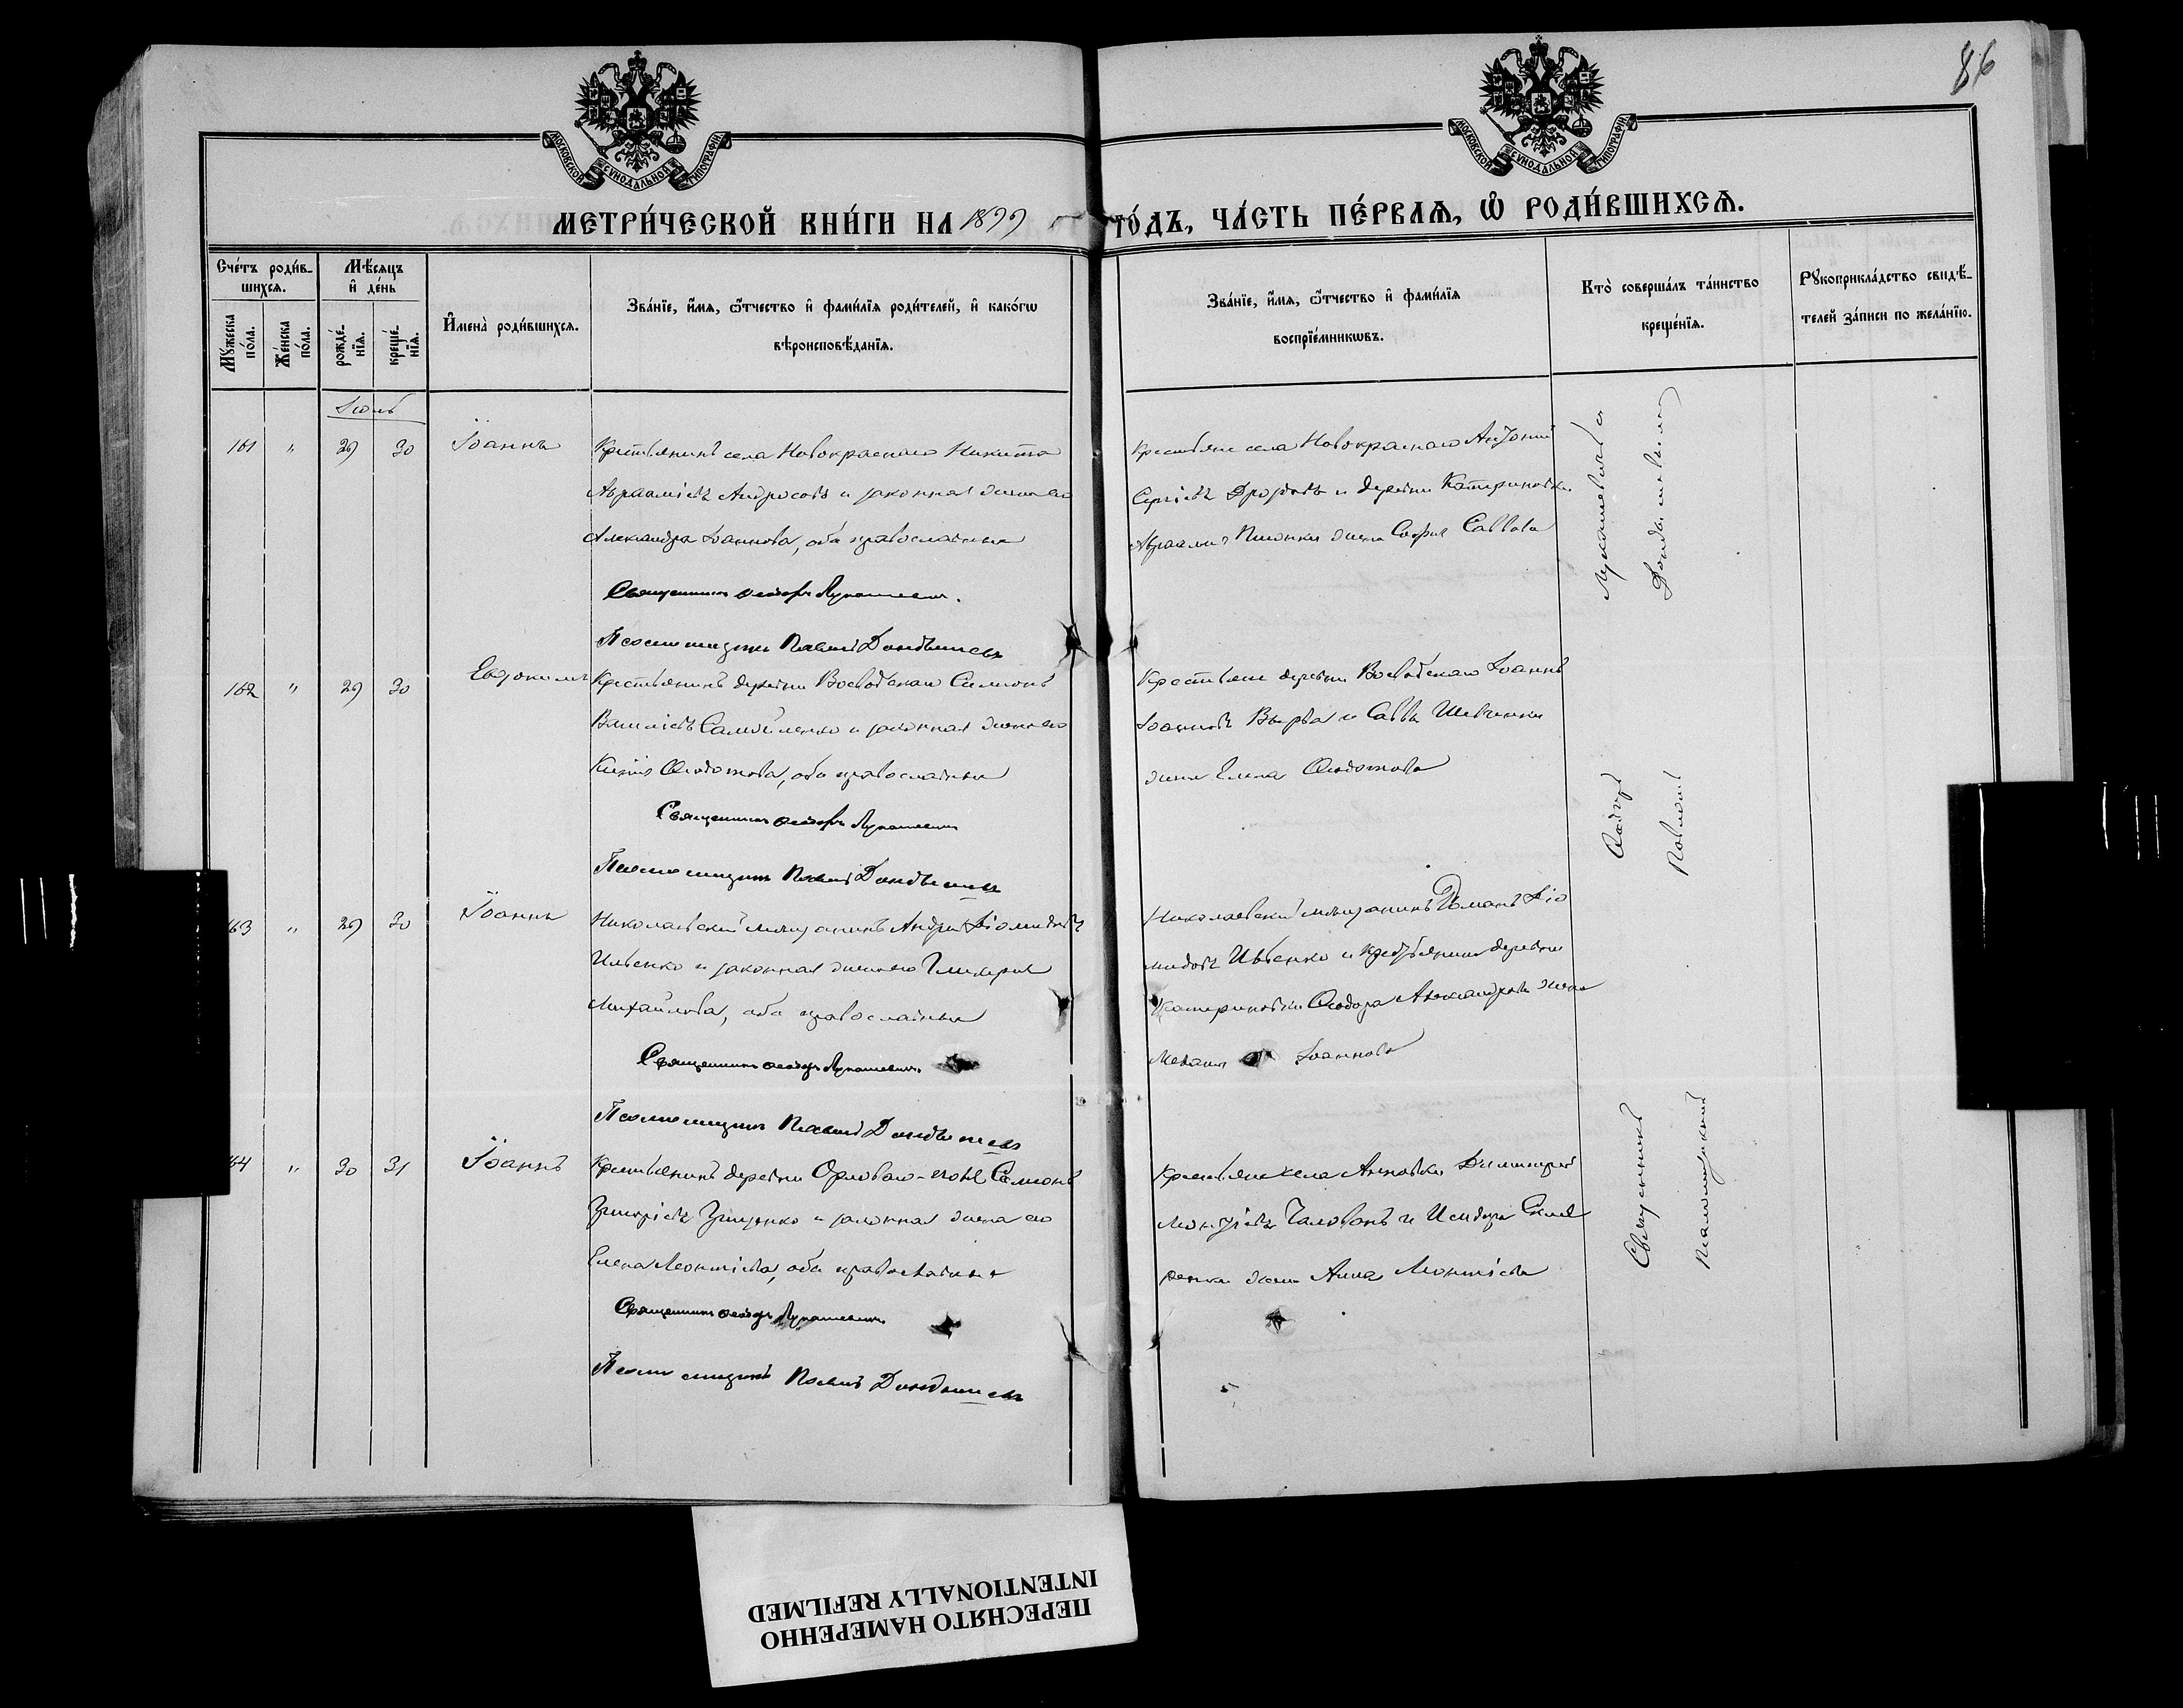 86
МОСКОВСКОЙ СУНОДАЛЬНОЙ ТИПОГРАФІИ
МОСКОВСКОЙ СУНОДАЛЬНОЙ ТИПОГРАФІИ
МЕТРИ́ЧЕСКОЙ КНИ́ГИ НА 1899 ГО́ДЪ, ЧА́СТЬ ПЕ́РВАѦ, Ѡ҆ РОДИ́ВШИХСѦ.
Сче́тъ роди́в-
шихсѧ.
Мꙋ́жеска по́ла.
Же́нска по́ла.
Мѣ́сѧцъ
и҆ де́нь
рожде́-
нїѧ.
креще́-
нїѧ.
И҆мена̀ роди́вшихсѧ.
Зва́нїе, и҆́мѧ, ѻ҆́тчество и҆ фами́лїѧ роди́телей, и҆ како́гѡ
вѣроисповѣ́данїѧ.
Зва́нїе, и҆́мѧ, ѻ҆́тчество и҆ фами́лїѧ
воспрїе́мникѡвъ.
Кто̀ соверша́лъ та́инство
креще́нїѧ.
Рꙋкоприкла́дство свидѣ́-
телей за́писи по жела́нїю.
Іюль
161 " 29 30 Іоаннъ
Крестьянинъ села Новокраснаго Никита
Авраміевъ Андросовъ и законная жена его
Александра Іоаннова, оба православные
Священникъ Ѳеодоръ Лукашевичъ.
Псаломщикъ Павелъ Дондышевъ
Крестьяне села Новокраснаго Антоній
Сергіевъ Дроздовъ и деревни Катериновки
Авраамія жена Софія Саввова
162 " 29 30 Евдокимъ
Крестьянинъ деревни Воеводскаго Симеонъ
Василіевъ Самойленко и законная жена его
Ксенія Ѳеодотова, оба православные
Священникъ Ѳеодоръ Лукашевичъ
Псаломщикъ Павелъ Дондышевъ
Крестьяне деревни Воеводскаго Іоаннъ
Іоанновъ и Саввы Шевченки
жена Елена Ѳеодотова
163 " 29 30 Іоаннъ
Николаевскій мѣщанинъ Андрей Діомидовъ
Ивченко и законная жена его Гликерія
Михайлова, оба православные
Священникъ Ѳеодоръ Лукашевичъ.
Псаломщикъ Павелъ Дондышевъ
Николаевскій мѣщанинъ Романъ Діо
мидовъ Ивченко и крестьянина деревни
Катериновки Ѳеодора Александрова жена
Меланія Іоаннова
164 " 30 31 Іоаннъ
Крестьянинъ деревни Орловаго-поля Симеонъ
Григоріевъ Грищенко и законная жена его
Елена Леонтіева, оба православные
Священникъ Ѳеодоръ Лукашевичъ.
Псаломщикъ Павелъ Дондышевъ
Крестьяне села Анновки Димитрій
Леонтіевъ Чалованъ и Исидора
жена Анна Леонтіева
Священникъ Ѳеодоръ Лукашевичъ и
Псаломщикъ Павелъ Дондышевъ
ПЕРЕСНЯТО НАМЕРЕННО
INTENTIONALLY REFILMED